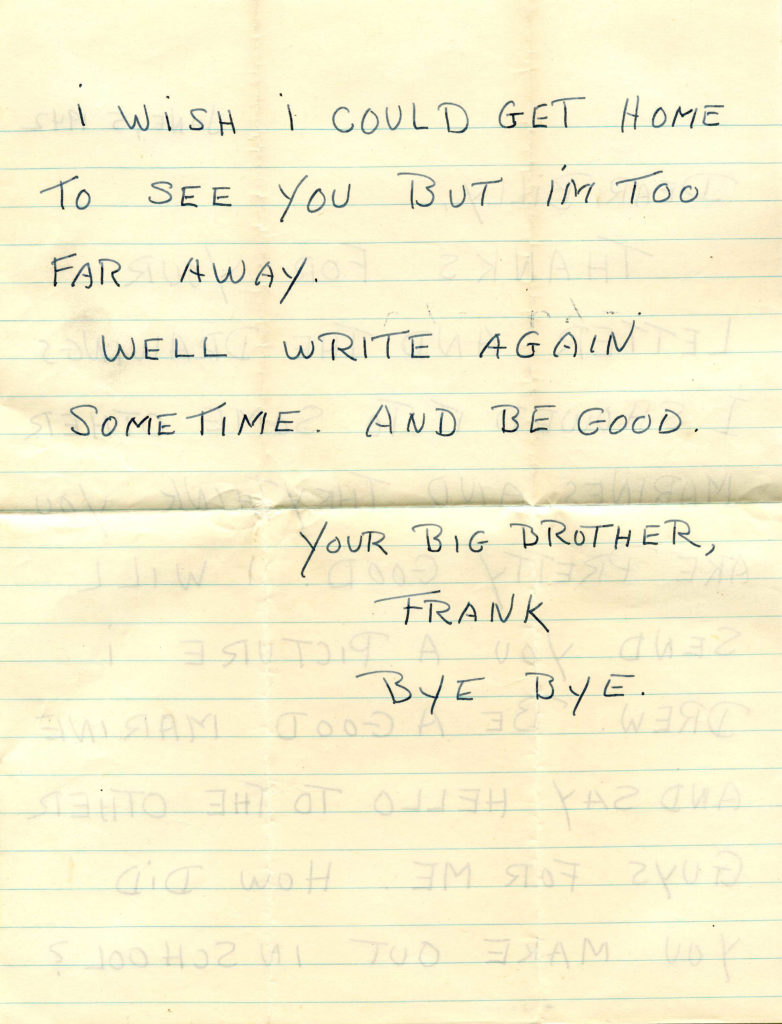 i WISH i COULD GET HOME
TO SEE YOU BUT i'M TOO
FAR AWAY.
WELL WRITE AGAIN
SOMETIME. AND BE GOOD.
YOUR BIG BROTHER,
FRANK
BYE BYE.